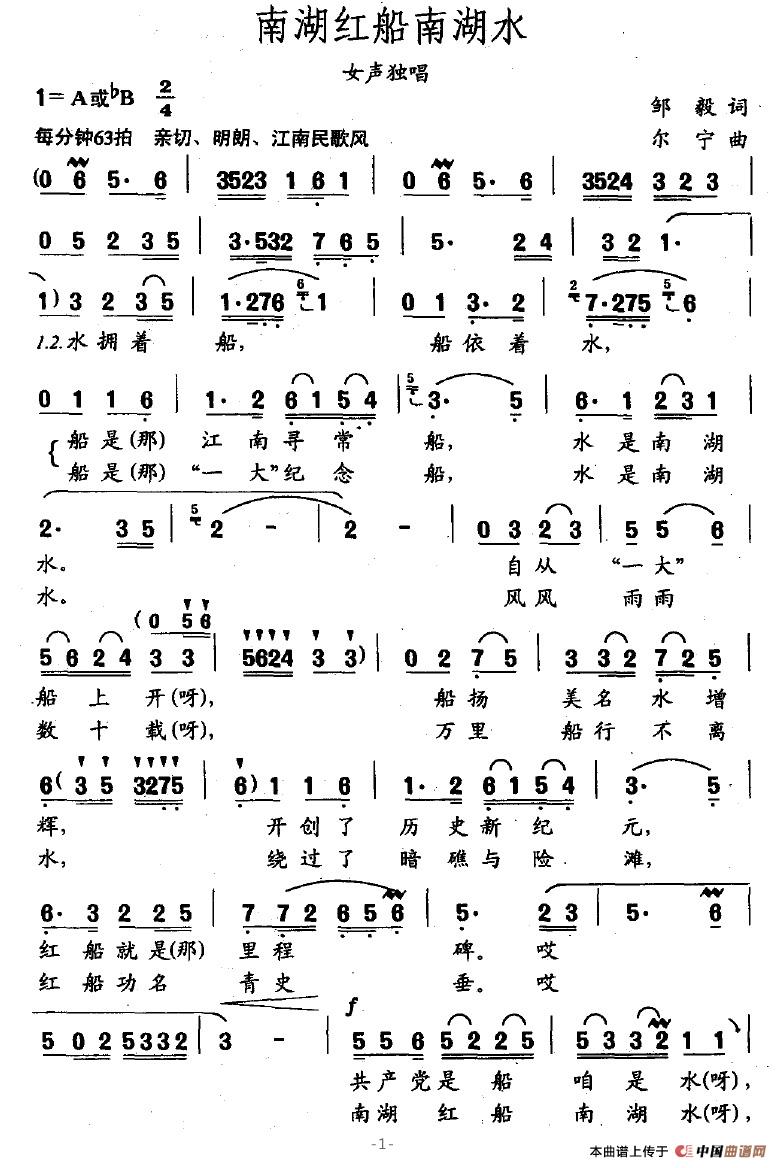 南湖红船南湖水
女声独唱
1=A或♭B 2/4
邹 毅 词
每分钟63拍 亲切、明朗、江南民歌风
尔 宁 曲
(0 6 5· 6 | 3523 1 6 1 | 0 6 5· 6 | 3524 3 2 3 |
0 5 2 3 5 | 3·532 7 6 5 | 5· 2 4 | 3 2 1· |
1) 3 2 3 5 | 1·276 6 1 | 0 1 3· 2 | 2 7·275 6 |
1.2.水 拥 着 船, 船 依 着 水,
0 1 1 6 | 1· 2 6 1 5 4 | 5 3· 5 | 6· 1 2 3 1 |
船 是(那) 江 南 寻 常 船, 水 是 南 湖
船 是(那) “一 大”纪 念 船, 水 是 南 湖
2· 3 5 | 5 2 - | 2 - | 0 3 2 3 | 5 5 6 |
水。 自 从 “一 大”
水。 风 风 雨 雨
(0 5 6
5 6 2 4 3 3 | 5624 3 3) | 0 2 7 5 | 3 3 2 7 2 5 |
船 上 开(呀), 船 扬 美 名 水 增
数 十 载(呀), 万 里 船 行 不 离
6( 3 5 3275 | 6) 1 1 6 | 1· 2 6 1 5 4 | 3· 5 |
辉, 开 创 了 历 史 新 纪 元,
水, 绕 过 了 暗 礁 与 险 滩,
6· 3 2 2 5 | 7 7 2 6 5 6 | 5· 2 3 | 5· 6 |
红 船 就 是(那) 里 程 碑。 哎
红 船 功 名 青 史 垂。 哎
f
5 0 2 5 3 3 2 | 3 - | 5 5 6 5 2 2 5 | 5 3 3 2 1 1 |
共 产 党 是 船 咱 是 水(呀),
南 湖 红 船 南 湖 水(呀),
-1-
本曲谱上传于 中国曲谱网